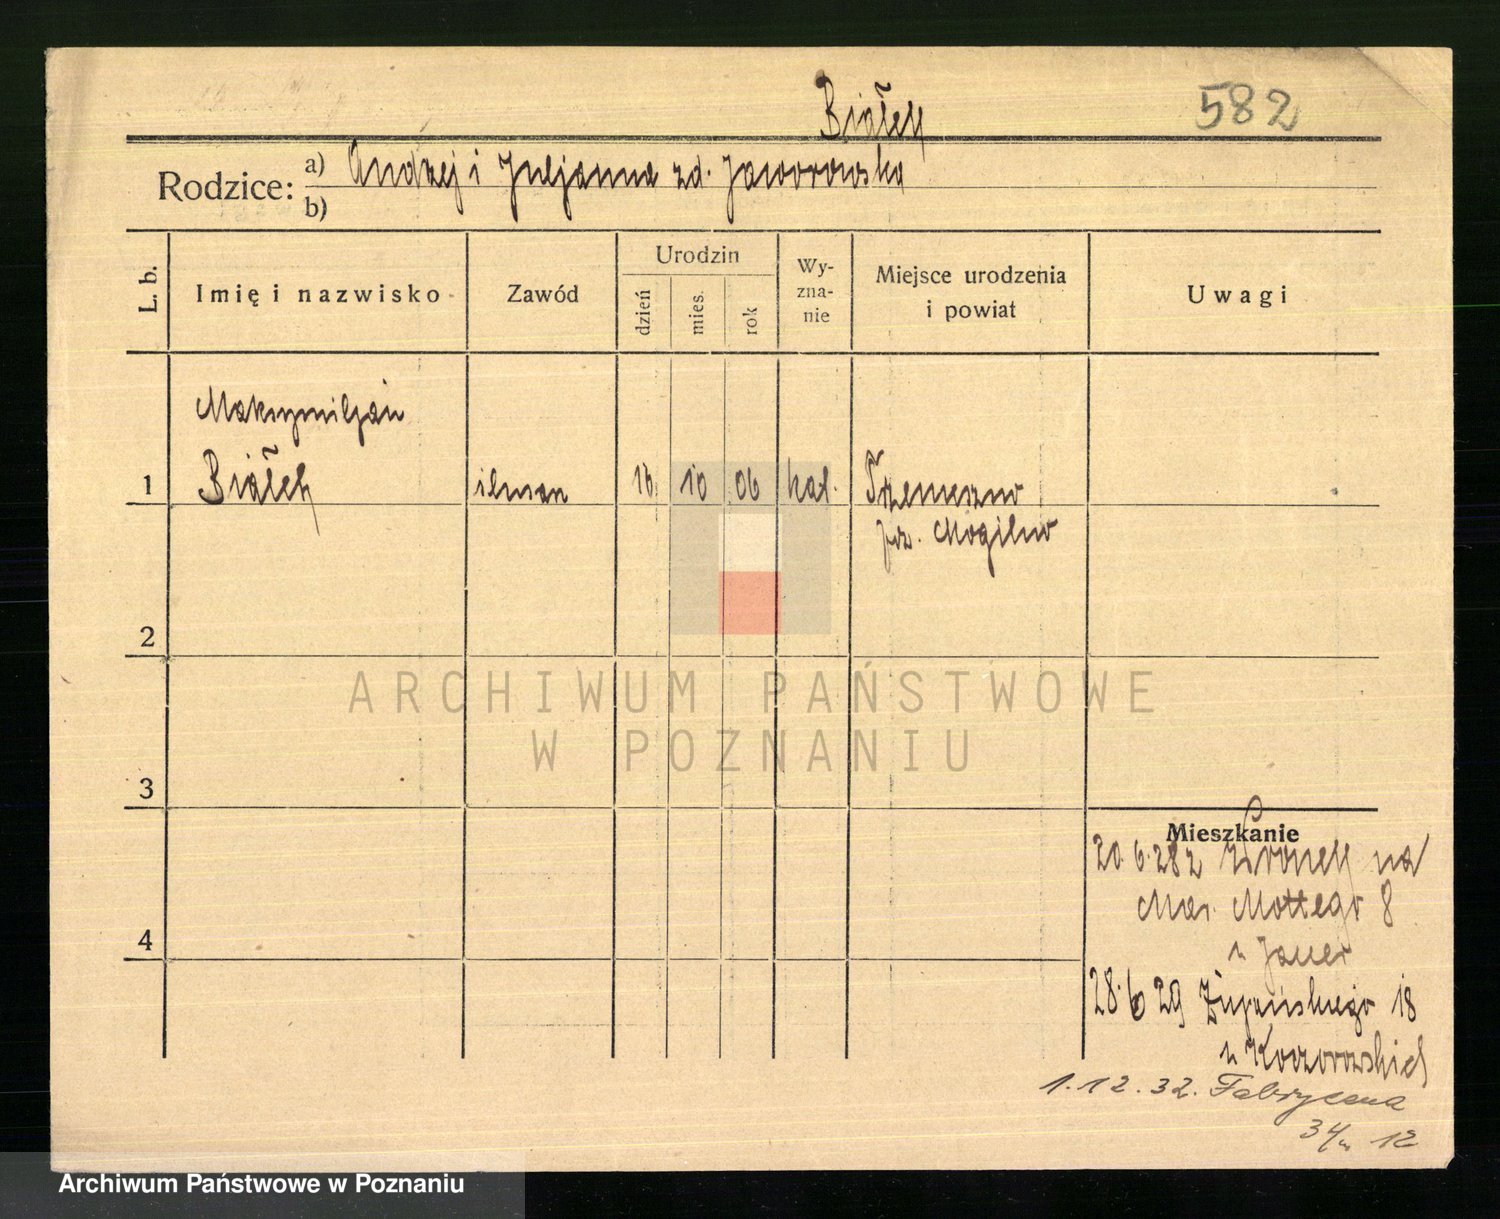 Białek
582
Rodzice:
a) Andrzej i Juljanna zd. Jaworowska
b)
L. b.
Imię i nazwisko
Zawód
Urodzin
dzień
mies.
rok
Wy-
zna-
nie
Miejsce urodzenia
i powiat
Uwagi
Maksymiljan
1 Białek 16 10 06 kat. Trzemeszno
pow. Mogilno
2
ARCHIWUM PAŃSTWOWE
W POZNANIU
3
Mieszkanie
20. 6. 28 z Wronek na
Mar. Mottego 8
4
u Jauer
28. 6 29 Żupańskiego 18
u Koczorowskich
1. 12. 32. Fabryczna
34 m 12
Archiwum Państwowe w Poznaniu